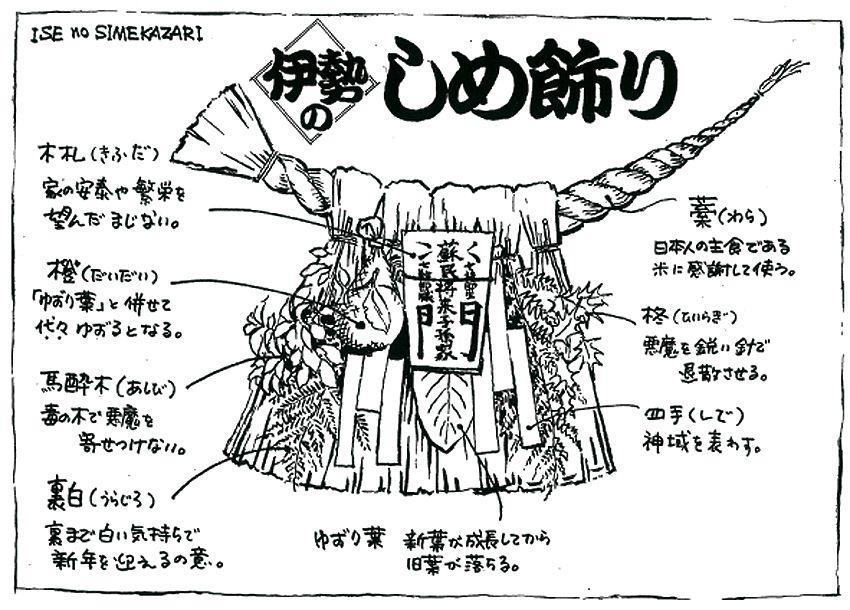 ISE no SIMEKAZARI
伊勢の
しめ飾り
木札(きふだ)
家の安泰や繁栄を
望んだまじない。
橙(だいだい)
「ゆずり葉」と併せて
代々ゆずるとなる。
馬酔木(あしび)
毒の木で悪魔を
寄せつけない。
裏白(うらじろ)
裏まで白い気持ちで
新年を迎えるの意。
蘇民将来子孫家
門
藁(わら)
日本人の主食である
米に感謝して使う。
柊(ひいらぎ)
悪魔を鋭い針で
退散させる。
四手(しで)
神域を表わす。
ゆずり葉
新葉が成長してから
旧葉が落ちる。